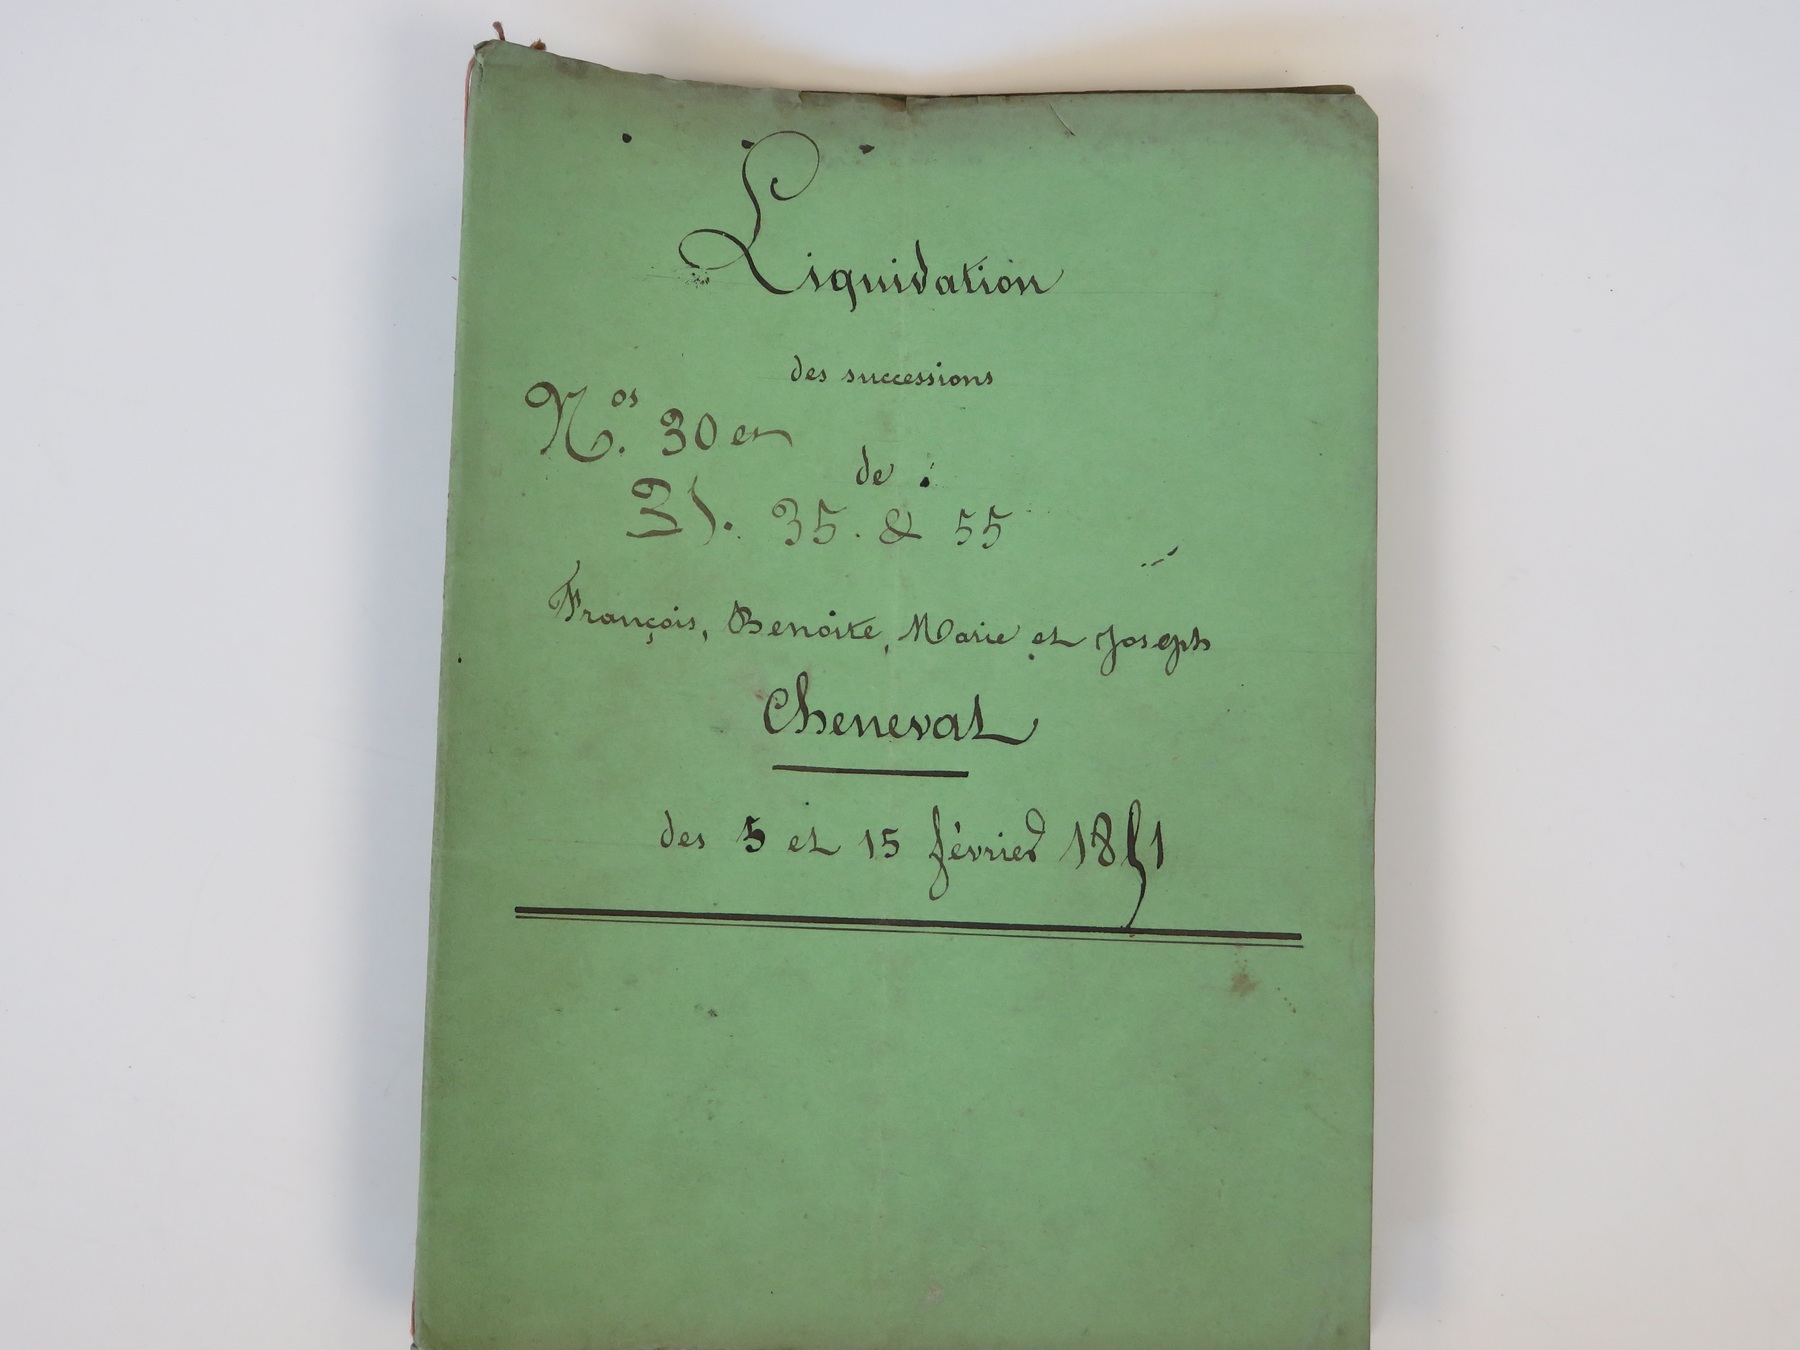 Liquidation
des successions
Nos. 30 et
de :
31. 35. & 55
François, Benoite, Marie et Joseph
Cheneval
des 5 et 15 février 1851